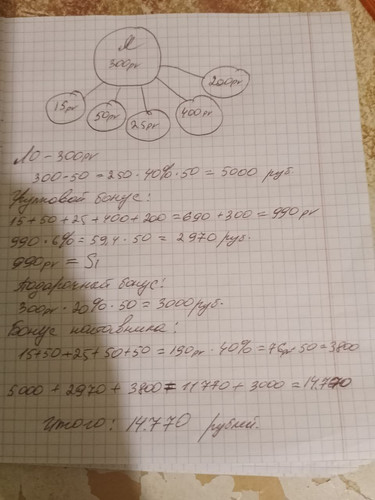 Я
300pv
15pv
50pv
25pv
400pv
200pv
ЛО - 300pv
300 - 50 = 250 · 40% · 50 = 5000 руб
Групповой бонус:
15 + 50 + 25 + 400 + 200 = 690 + 300 = 990 pv
990 · 6% = 59,4 · 50 = 2970 руб.
990pv = S1
Подарочный бонус:
300pv · 20% · 50 = 3000руб.
Бонус наставника:
15+50+25+50+50 = 190pv · 40% = 76pv · 50 = 3800
5000 + 2970 + 3800 = 11770 + 3000 = 14.770
Итого: 14.770 рублей.